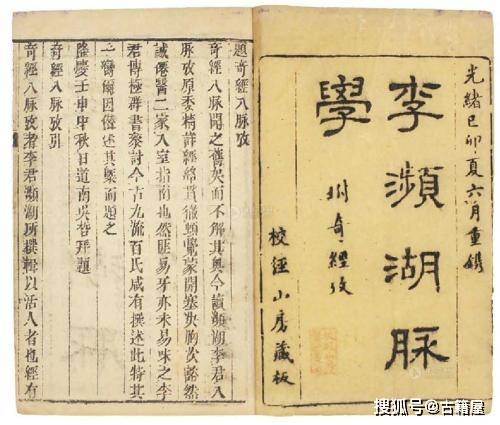 光緒己卯夏六月重鐫
李瀕湖脉
學
坿奇經攷
校經山房藏板
題奇經八脉攷
奇經八脉聞之舊矣而不解其奧今讀瀕湖李君八
脉攷原委精詳經絡貫徹頓覺蒙開塞决胸次豁然
誠僊醫二家入室指南也然匪易牙亦未易味之李
君博極群書參討今古九流百氏咸有撰述此特其
一臠爾因僭述其槩而題之
隆慶壬申中秋日道南吳哲拜題
奇經八脉攷引
奇經八脉攷者李君瀕湖所撰輯以活人者也經有
搜狐号@古籍屋